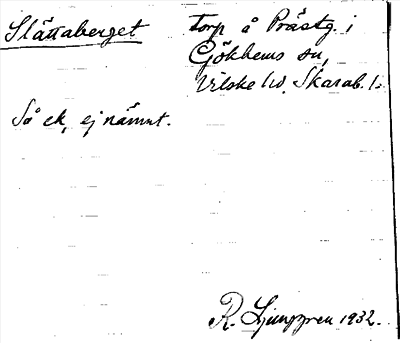 Slättaberget torp å Prästg. i
Gökhems sn,
Vilske hd. Skarab. l.
Så ek, ej nämnt.
R. Ljunggren 1932.